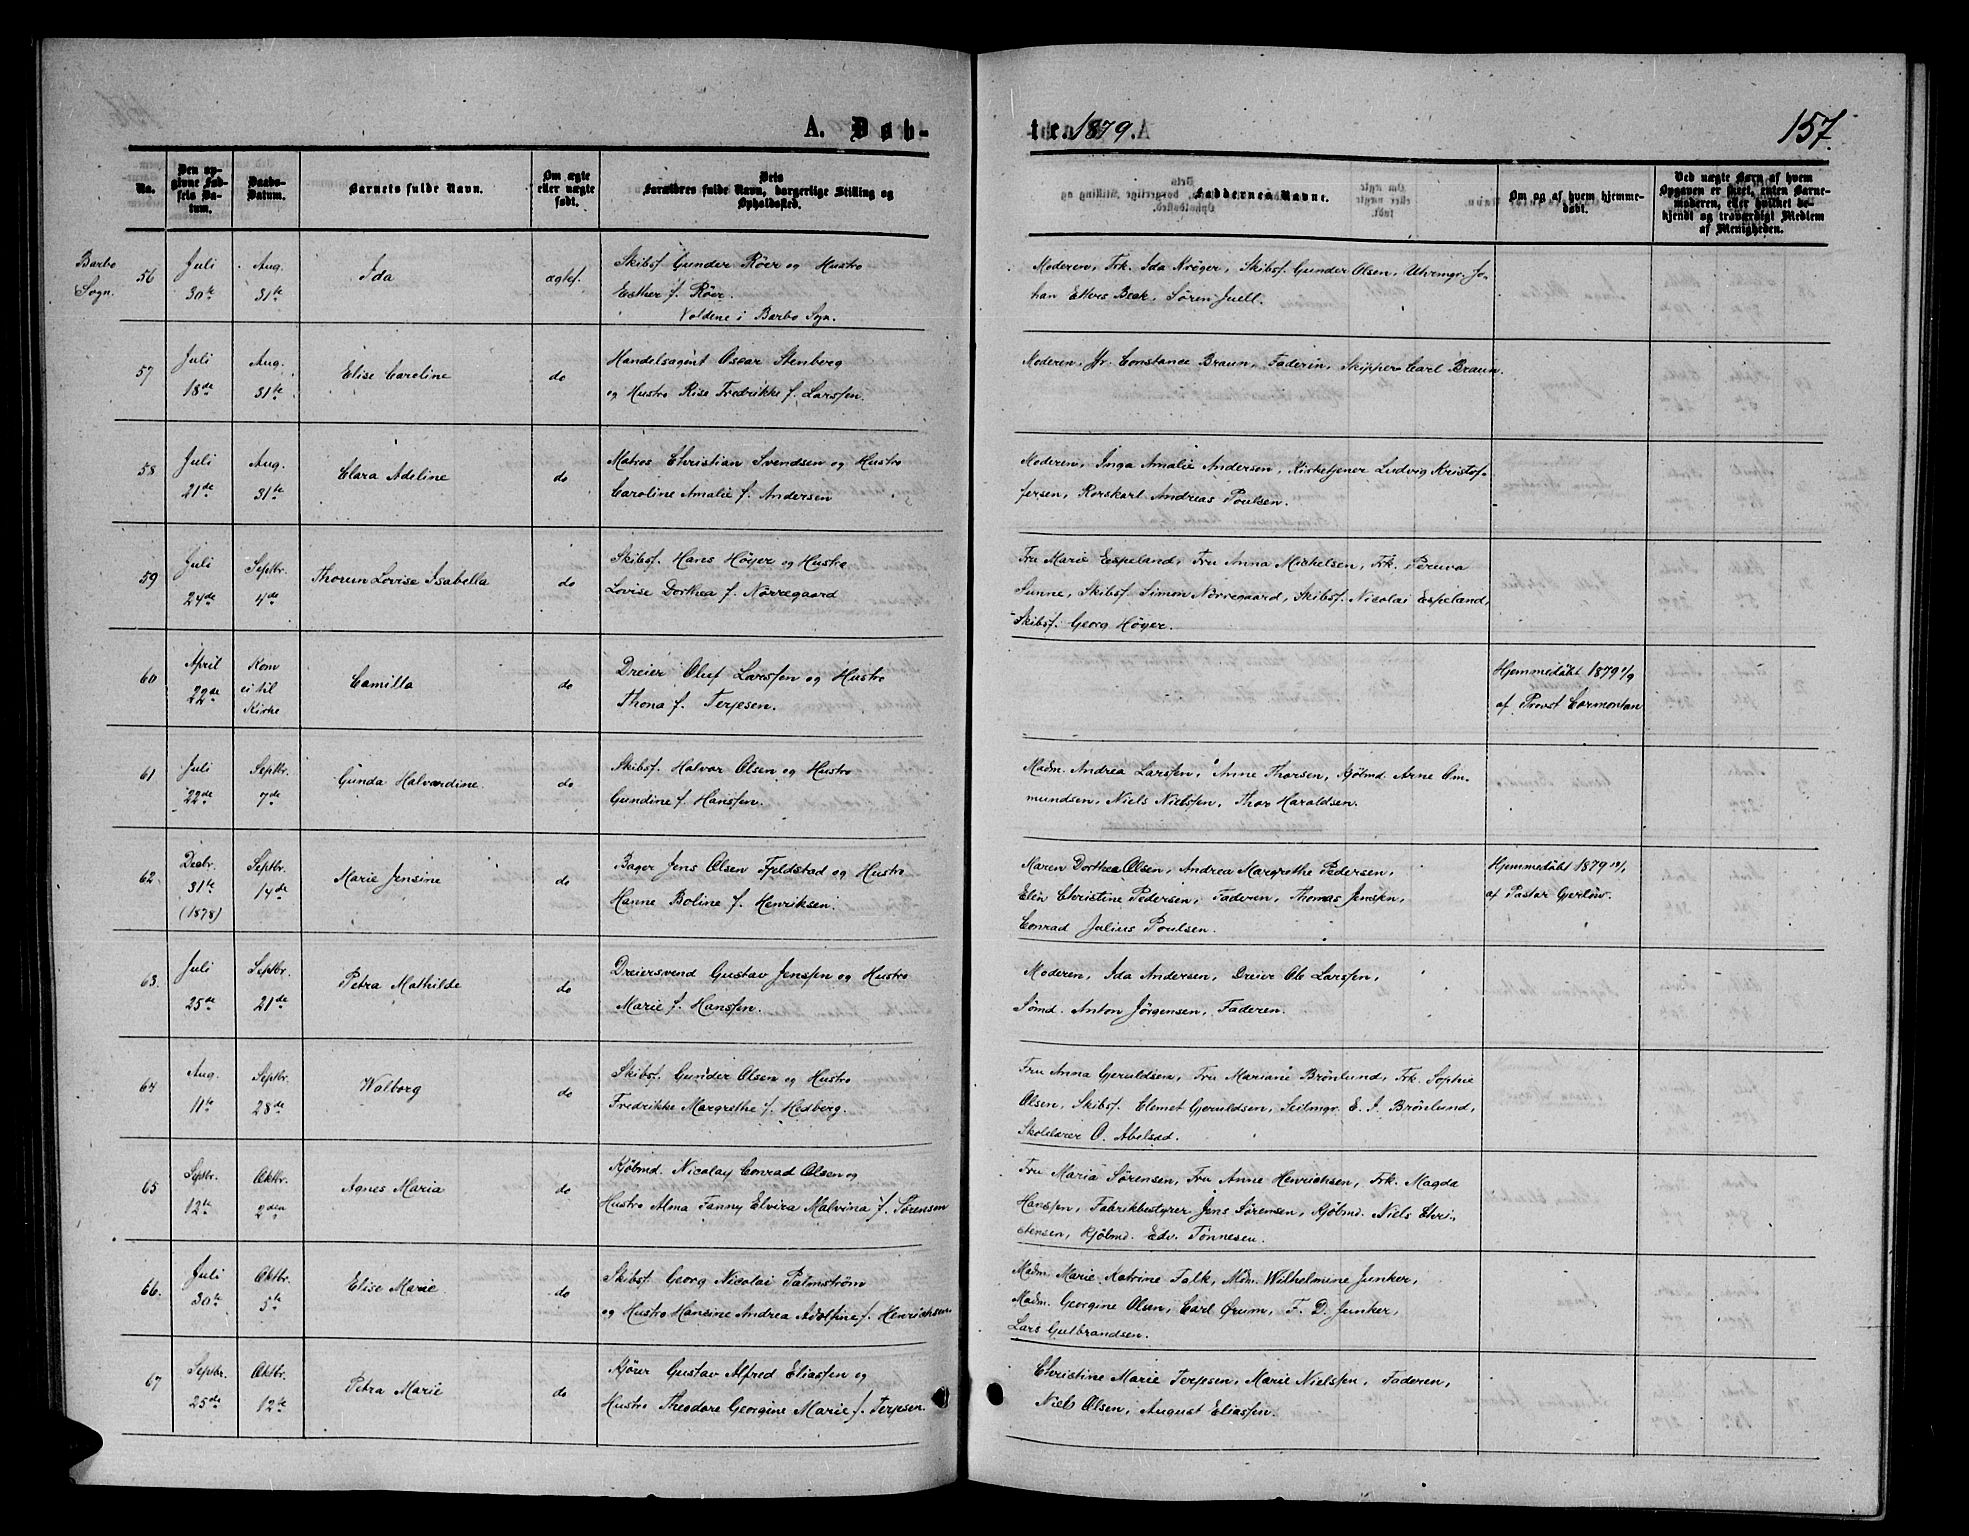 A. Døb-
te. 1879.
157.
No.
Den op-
givne Fød-
sels Da-
tum.
Daabs-
Datum.
Barnets fulde Navn.
Om ægte
eller uægte
født.
Dets
Forældres fulde Navn, borgerlige Stilling og
Opholdssted.
Faddernes Navne.
Om og af hvem hjemme-
døbt.
Ved uægte Børn af hvem
Opgaven er skeet, enten Barne-
moderen, eller hvilket be-
kjendt og troværdigt Medlem
af Menigheden.
Barbo
Sogn.
56
Juli
30te
Aug.
31te
Ida
ægtef.
Skibsf. Gunder Röer og Hustro
Esther f. Röer.
Voldene i Barbo Sogn.
Moderen, Frk. Ida Kröger, Skibsf. Gunder Olsen, Uhrmgr. Jo-
han Ellers Beck, Sören Juell.
57
Juli
18de
Aug.
31te
Elise Caroline
do
Handelsagent Oscar Stenberg
og Hustro Rise Fredrikke f. Larssen.
Moderen, Fr. Constance Braun, Faderen, Skipper Carl Braun.
58
Juli
21de
Aug.
31te
Clara Adeline
do
Matros Christian Svendsen og Hustro
Caroline Amalie f. Andersen
Moderen, Inga Amalie Andersen, Kirketjener Ludvig Kristof-
fersen, Rorskarl Andreas Poulsen.
59
Juli
24de
Septbr.
4de
Thorun Lovise Isabella
do
Skibsf. Hans Höyer og Hustro
Lovise Dorthea f. Nörregaard
Fru Marie Espeland, Fru Anna Mickelsen, Frk. Peruva
Sunne, Skibsf. Simon Nörregaard, Skibsf. Nicolai Espeland,
Skibsf. Georg Höyer.
60
April
22de
Kom
ei til
Kirke
Camilla
do
Dreier Oluf Larssen og Hustro
Thona f. Terjesen.
Hjemmedöbt 1879 1/9
af Provst Cormontan
61
Juli
22de
Septbr.
7de
Gunda Halvardine
do
Skibsf. Halvor Olsen og Hustro
Gundine f. Hanssen.
Madm. Andrea Larssen, Anne Thorsen, Kjölmd. Arne Om-
mundsen, Niels Nielssen, Thor Haroldsen.
62
Decbr.
31te
(1878)
Septbr.
14de
Marie Jensine
do
Bager Jens Olsen Fjeldstad og Hustro
Hanne Boline f. Henriksen.
Maren Dorthea Olsen, Andrea Margrethe Pedersen,
Elen Christine Pedersen, Faderen, Thomas Jenssen,
Conrad Julius Poulsen.
Hjemmedöbt 1879
af Pastor Gjerlöw.
63.
Juli
25de
Septbr.
21de
Petra Mathilde
do
Dreiersvend Gustav Jenssen og Hustro
Marie f. Hanssen.
Moderen, Ida Andersen, Dreier Ole Larssen,
Sömd. Anton Jörgensen, Faderen.
64
Aug.
11te
Septbr.
28de
Walborg
do
Skibsf. Gunder Olsen og Hustro
Fredrikke Margrethe f. Hedberg.
Fru Anna Geruldsen, Fru Mariane Brönlund, Frk. Sophie
Olsen, Skibsf. Clemet Geruldsen, Seilmgr. E. J. Brönlund,
Skolelærer O. Abelsæd.
65
Septbr.
12te
Oktbr.
2den
Agnes Maria
do
Kjöbmd. Nicolay Conrad Olsen og
Hustro Alma Fanny Elvira Malvina f. Sørensen
Fru Maria Sørensen, Fru Anne Henrichsen, Frk. Magda
Hanssen, Fabrikbestyrer Jens Sørensen, Kjöbmd. Niels Chri-
stensen, Kjöbmd. Edv. Tönnesen.
66.
Juli
30te
Oktbr.
5te
Elise Marie
do
Skibsf. Georg Nicolai Palmström
og Hustro Hansine Andrea Adolfine f. Henrichsen
Madm. Marie Katrine Falk, Mdm. Wilhelmine Junker,
Madm. Georgine Olsen, Carl Örum, F. D. Junker,
Lars Gulbrandsen.
67
Septbr.
25de
Oktbr.
12te
Petra Marie
do
Kjörer Gustav Alfred Eliassen og
Hustro Theodore Georgine Marie f. Terjesen.
Christine Marie Terjesen, Marie Nielssen, Faderen,
Niels Olsen, August Eliassen.